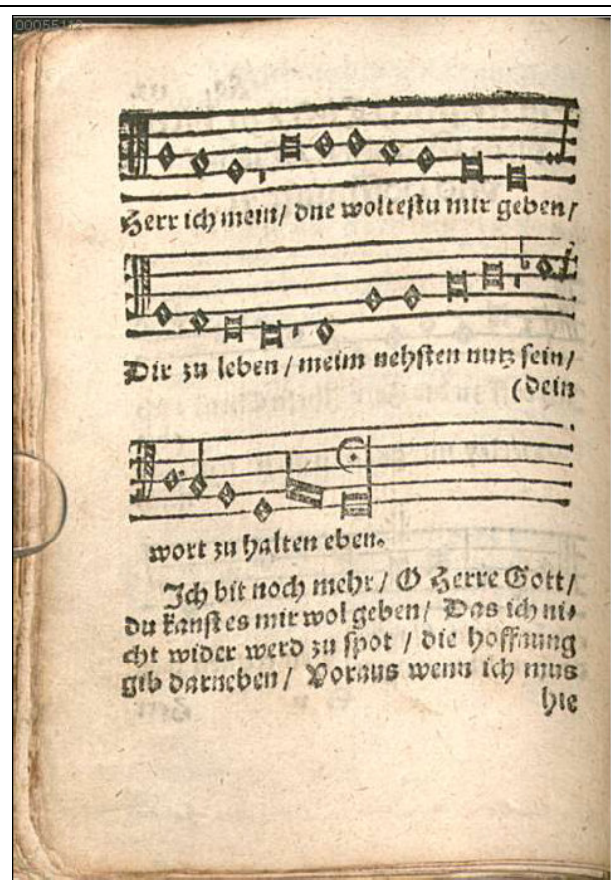 00055112
Herr ich mein/ dne woltestu mir geben/
Dir zu leben / meim nehsten nutz sein/
(dein
wort zu halten eben.
Jch bit noch mehr / O Herre Gott/
du kanst es mir wol geben/ Das ich ni⸗
cht wider werd zu spot / die hoffnung
gib darneben / Voraus wenn ich mus
hie